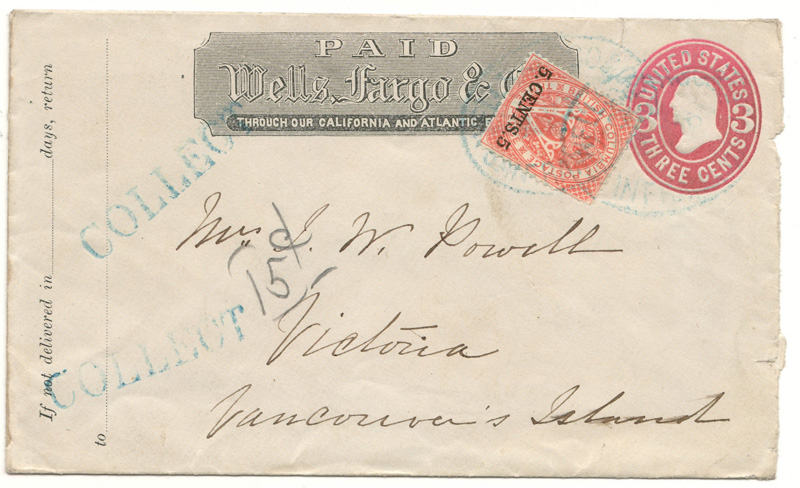 PAID
Wells, Fargo & C
THROUGH OUR CALIFORNIA AND ATLANTIC E
UNITED STATES
3 3
THREE CENTS
5. CENTS. 5
BRITISH COLUMBIA POSTAGE
COLLECT
COLLECT
15¢
Mrs J. W. Powell
Victoria
Vancouver's Island
If not delivered in days, return
to